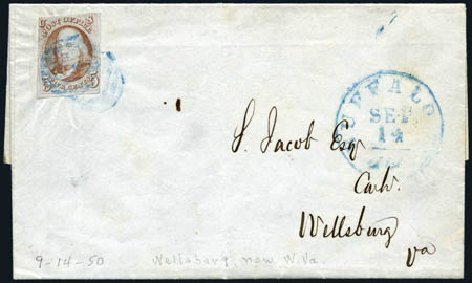 POST OFFICE
FIVE CENTS
BUFFALO
SEP
14
S. Jacob Esq
Wellsburg
Va
9-14-50 Wellsburg, now W.Va.